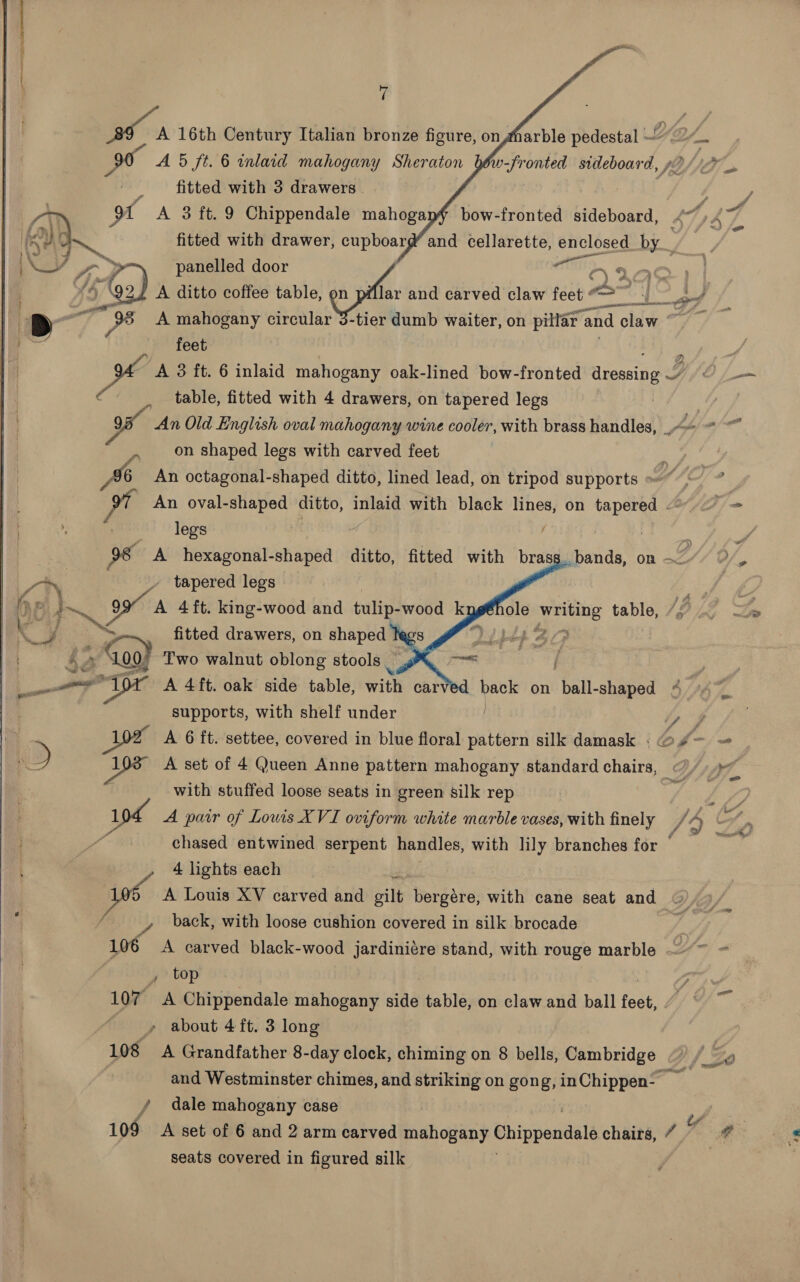 7
89 A 16th Century Italian bronze figure, on marble pedestal
90 A 5 ft. 6 inlaid mahogany Sheraton bow-fronted sideboard,
fitted with 3 drawers
91 A 3 ft. 9 Chippendale mahogany bow-fronted sideboard,
fitted with drawer, cupboard and cellarette, enclosed by
panelled door
92 A ditto coffee table, on pillar and carved claw feet
93 A mahogany circular 3-tier dumb waiter, on pillar and claw
feet
94 A 3 ft. 6 inlaid mahogany oak-lined bow-fronted dressing
table, fitted with 4 drawers, on tapered legs
95 An Old English oval mahogany wine cooler, with brass handles,
on shaped legs with carved feet
96 An octagonal-shaped ditto, lined lead, on tripod supports
97 An oval-shaped ditto, inlaid with black lines, on tapered
legs
98 A hexagonal-shaped ditto, fitted with brass bands, on
tapered legs
99 A 4 ft. king-wood and tulip-wood kneehole writing table,
fitted drawers, on shaped legs
100 Two walnut oblong stools
101 A 4 ft. oak side table, with carved back on ball-shaped
supports, with shelf under
102 A 6 ft. settee, covered in blue floral pattern silk damask
103 A set of 4 Queen Anne pattern mahogany standard chairs,
with stuffed loose seats in green silk rep
104 A pair of Louis XVI oviform white marble vases, with finely
chased entwined serpent handles, with lily branches for
4 lights each
105 A Louis XV carved and gilt bergère, with cane seat and
back, with loose cushion covered in silk brocade
106 A carved black-wood jardinière stand, with rouge marble
top
107 A Chippendale mahogany side table, on claw and ball feet,
about 4 ft. 3 long
108 A Grandfather 8-day clock, chiming on 8 bells, Cambridge
and Westminster chimes, and striking on gong, in Chippen-
dale mahogany case
109 A set of 6 and 2 arm carved mahogany Chippendale chairs,
seats covered in figured silk